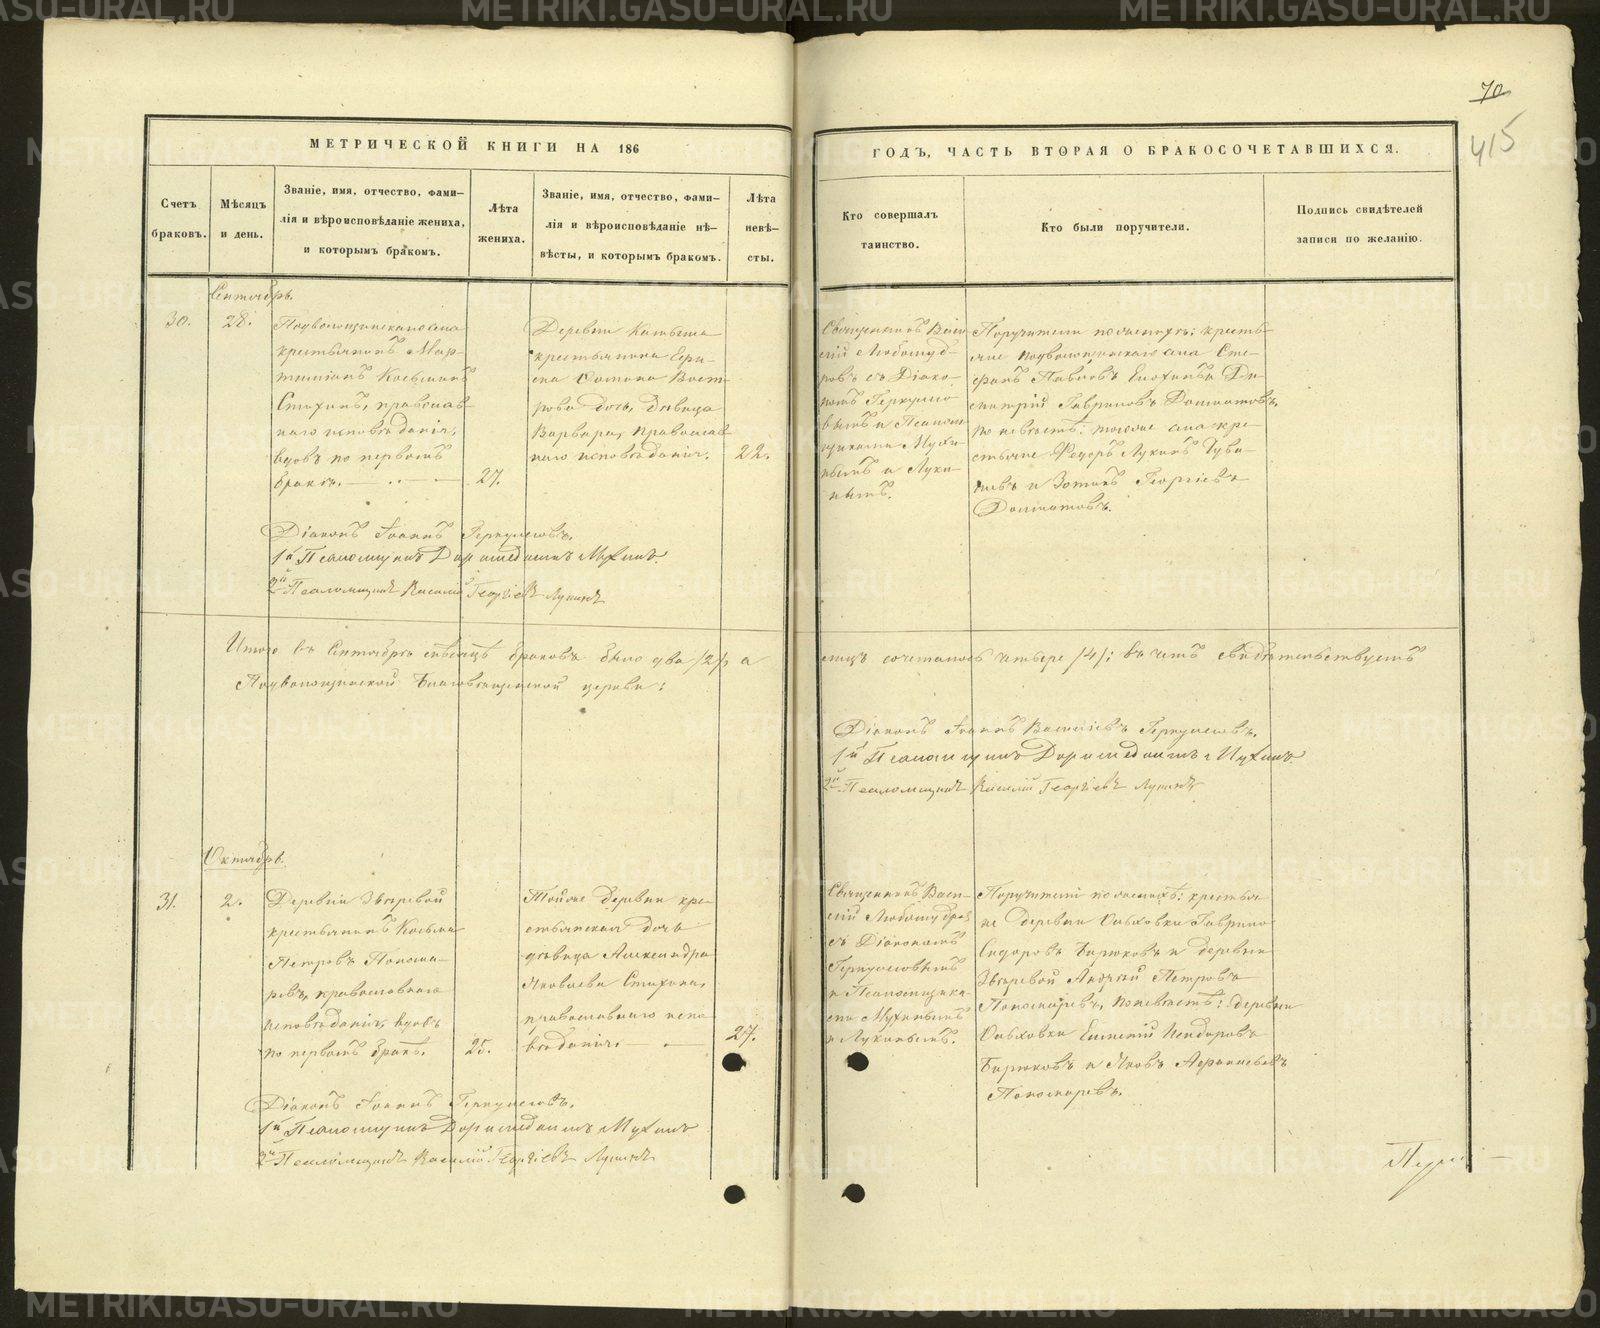 70
415
МЕТРИЧЕСКОЙ КНИГИ НА 186
ГОДЪ, ЧАСТЬ ВТОРАЯ О БРАКОСОЧЕТАВШИХСЯ.
Счетъ браковъ.
Мѣсяцъ и день.
Званіе, имя, отчество, фами-
лія и вѣроисповѣданіе жениха,
и которымъ бракомъ.
Лѣта
жениха.
Званіе, имя, отчество, фами-
лія и вѣроисповѣданіе не-
вѣсты, и которымъ бракомъ.
Лѣта
невѣ-
сты.
Кто совершалъ
таинство.
Кто были поручители.
Подпись свидѣтелей
записи по желанію.
Сентябрь.
30.
28.
крестьянинъ Мар-
Козьминъ
православ
наго исповѣданія,
вдовъ по первомъ
бракѣ.
27.
Деревни
крестьянина
дочь, дѣвица
Варвара, православ
наго исповѣданія.
22.
Священникъ Васи
лій Любомуд-
ровъ съ Діако-
номъ
вымъ и Псаломщ
щиками Мухи
нымъ и Луки-
нымъ.
Поручители по женихѣ: кресть-
яне села Сте-
фанъ Павловъ и Ди-
митрій Гавриловъ Долматовъ,
по невѣстѣ: тогоже села кре-
стьяне Федоръ Лукинъ
и Зотикъ Георгіевъ
Долматовъ.
Діаконъ Іоаннъ
1й Псаломщикъ Доримедонтъ Мухинъ.
2й Псаломщикъ Василій Георгіевъ Лукинъ
Итого въ Сентябрѣ мѣсяцѣ браковъ было два /2/, а
лицъ сочеталось четыре /4/: въ чемъ свидѣтельствуетъ
Благовѣщенской церкви:
Діаконъ Іоаннъ Васильевъ
1й Псаломщикъ Доримедонтъ Мухинъ.
2й Псаломщикъ Василій Георгіевъ Лукинъ
Октябрь.
31.
2.
Деревни Звѣревой
крестьянинъ Козьма
Петровъ Понома-
ревъ, православнаго
исповѣданія, вдовъ
по первомъ бракѣ.
25.
Тойже деревни кре-
стьянская дочь
дѣвица Александра
Яковлева
православнаго испо
вѣданія.
27.
Священникъ Васи-
лій Любомудровъ
съ Діакономъ
и Псаломщика-
ми Мухинымъ
и Лукинымъ.
Поручители по женихѣ: крестья
не деревни Гаврило
Сидоровъ Бирюковъ и деревни
Звѣревой Андрей Петровъ
Пономаревъ, по невѣстѣ: деревни
Евгеній Исидоровъ
Бирюковъ и Яковъ
Пономаревъ.
Діаконъ Іоаннъ
1й Псаломщикъ Доримедонтъ Мухинъ
2й Псаломщикъ Василій Георгіевъ Лукинъ
METRIKI.GASO-URAL.RU